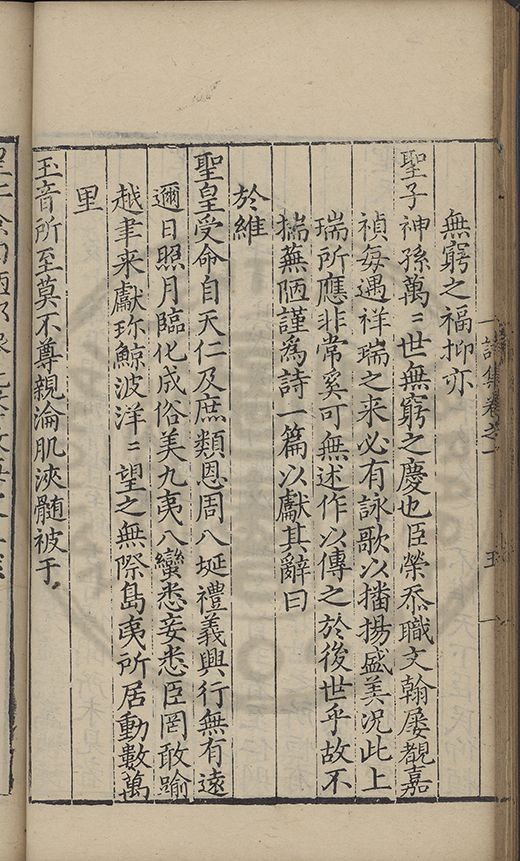 詩集卷之一
無窮之福抑亦
聖子神孫萬〻世無窮之慶也臣榮忝職文翰屡覩嘉
禎每遇祥瑞之来必有詠歌以播揚盛美况此上
瑞所應非常奚可無述作以傳之於後世乎故不
揣蕪陋謹為詩一篇以獻其辭曰
於維
聖皇受命自天仁及庶類恩周八埏禮義興行無有遠
邇日照月臨化成俗美九夷八蠻悉妾悉臣罔敢踰
越聿来獻珎鯨波洋〻望之無際島夷所居動數萬
里
玉音所至莫不尊親淪肌浹髄被于